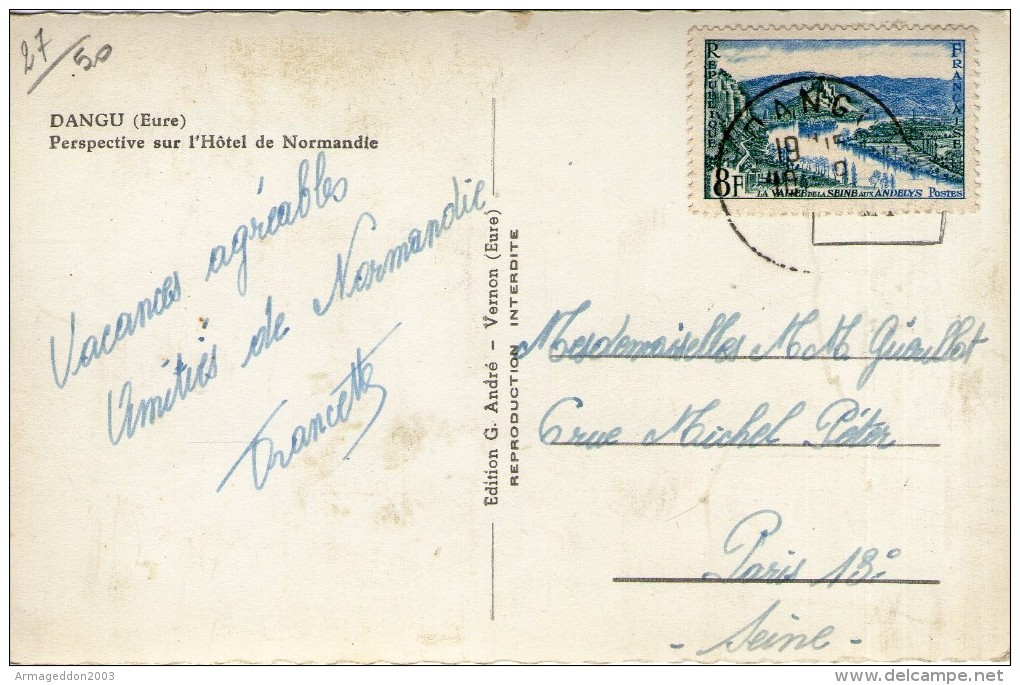 27/50
DANGU (Eure)
Perspective sur l'Hôtel de Normandie
Vacances agréables
Amitiés de Normandie
Francette
Edition G. André - Vernon (Eure)
REPRODUCTION INTERDITE
REPUBLIQUE
FRANÇAISE
8F
LA VALLÉE DE LA SEINE AUX ANDELYS POSTES
DANGU
19
Mesdemoiselles M.M. Guérillot
6 rue Michel Péter
Paris 13e
- Seine -
Armageddon2003
©delcampe.net